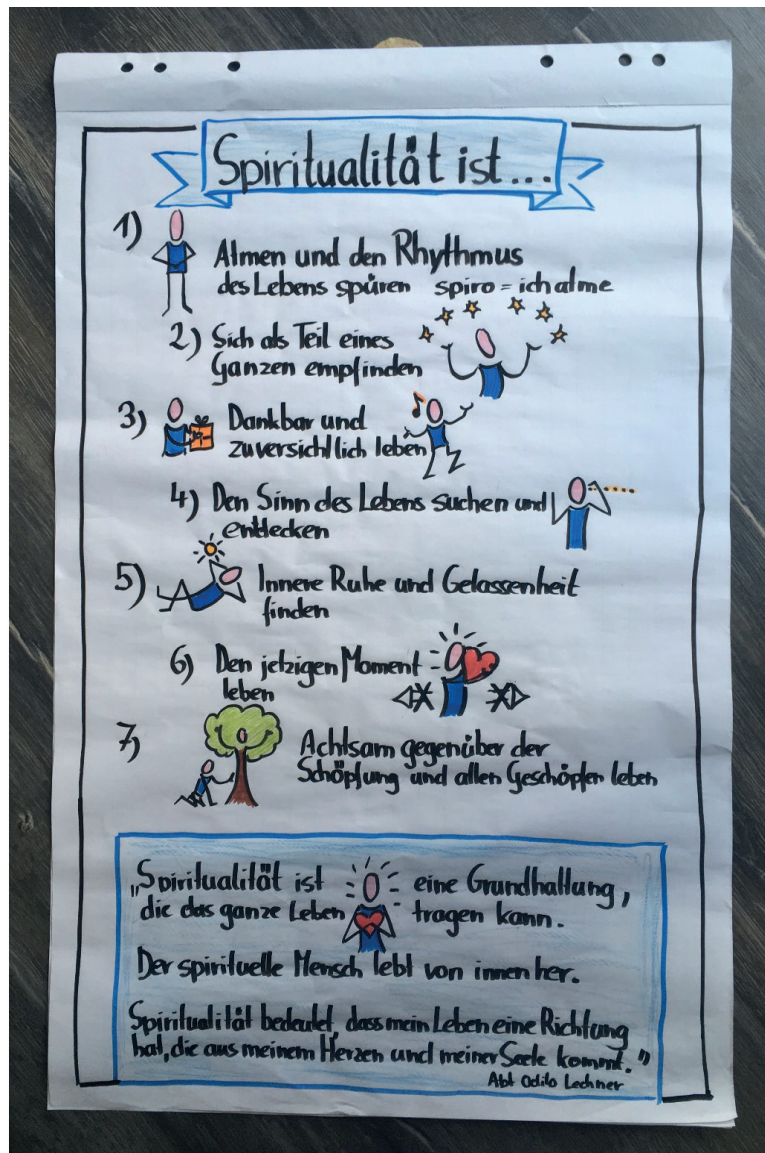 Spiritualität ist...
1) Atmen und den Rhythmus
des Lebens spüren spiro = ich atme
2) Sich als Teil eines
Ganzen empfinden
3) Dankbar und
zuversichtlich leben
4) Den Sinn des Lebens suchen und
entdecken
5) Innere Ruhe und Gelassenheit
finden
6) Den jetzigen Moment
leben
7) Achtsam gegenüber der
Schöpfung und allen Geschöpfen leben
„Spiritualität ist eine Grundhaltung,
die das ganze Leben tragen kann.
Der spirituelle Mensch lebt von innen her.
Spiritualität bedeutet, dass mein Leben eine Richtung
hat, die aus meinem Herzen und meiner Seele kommt."
Abt Odilo Lechner